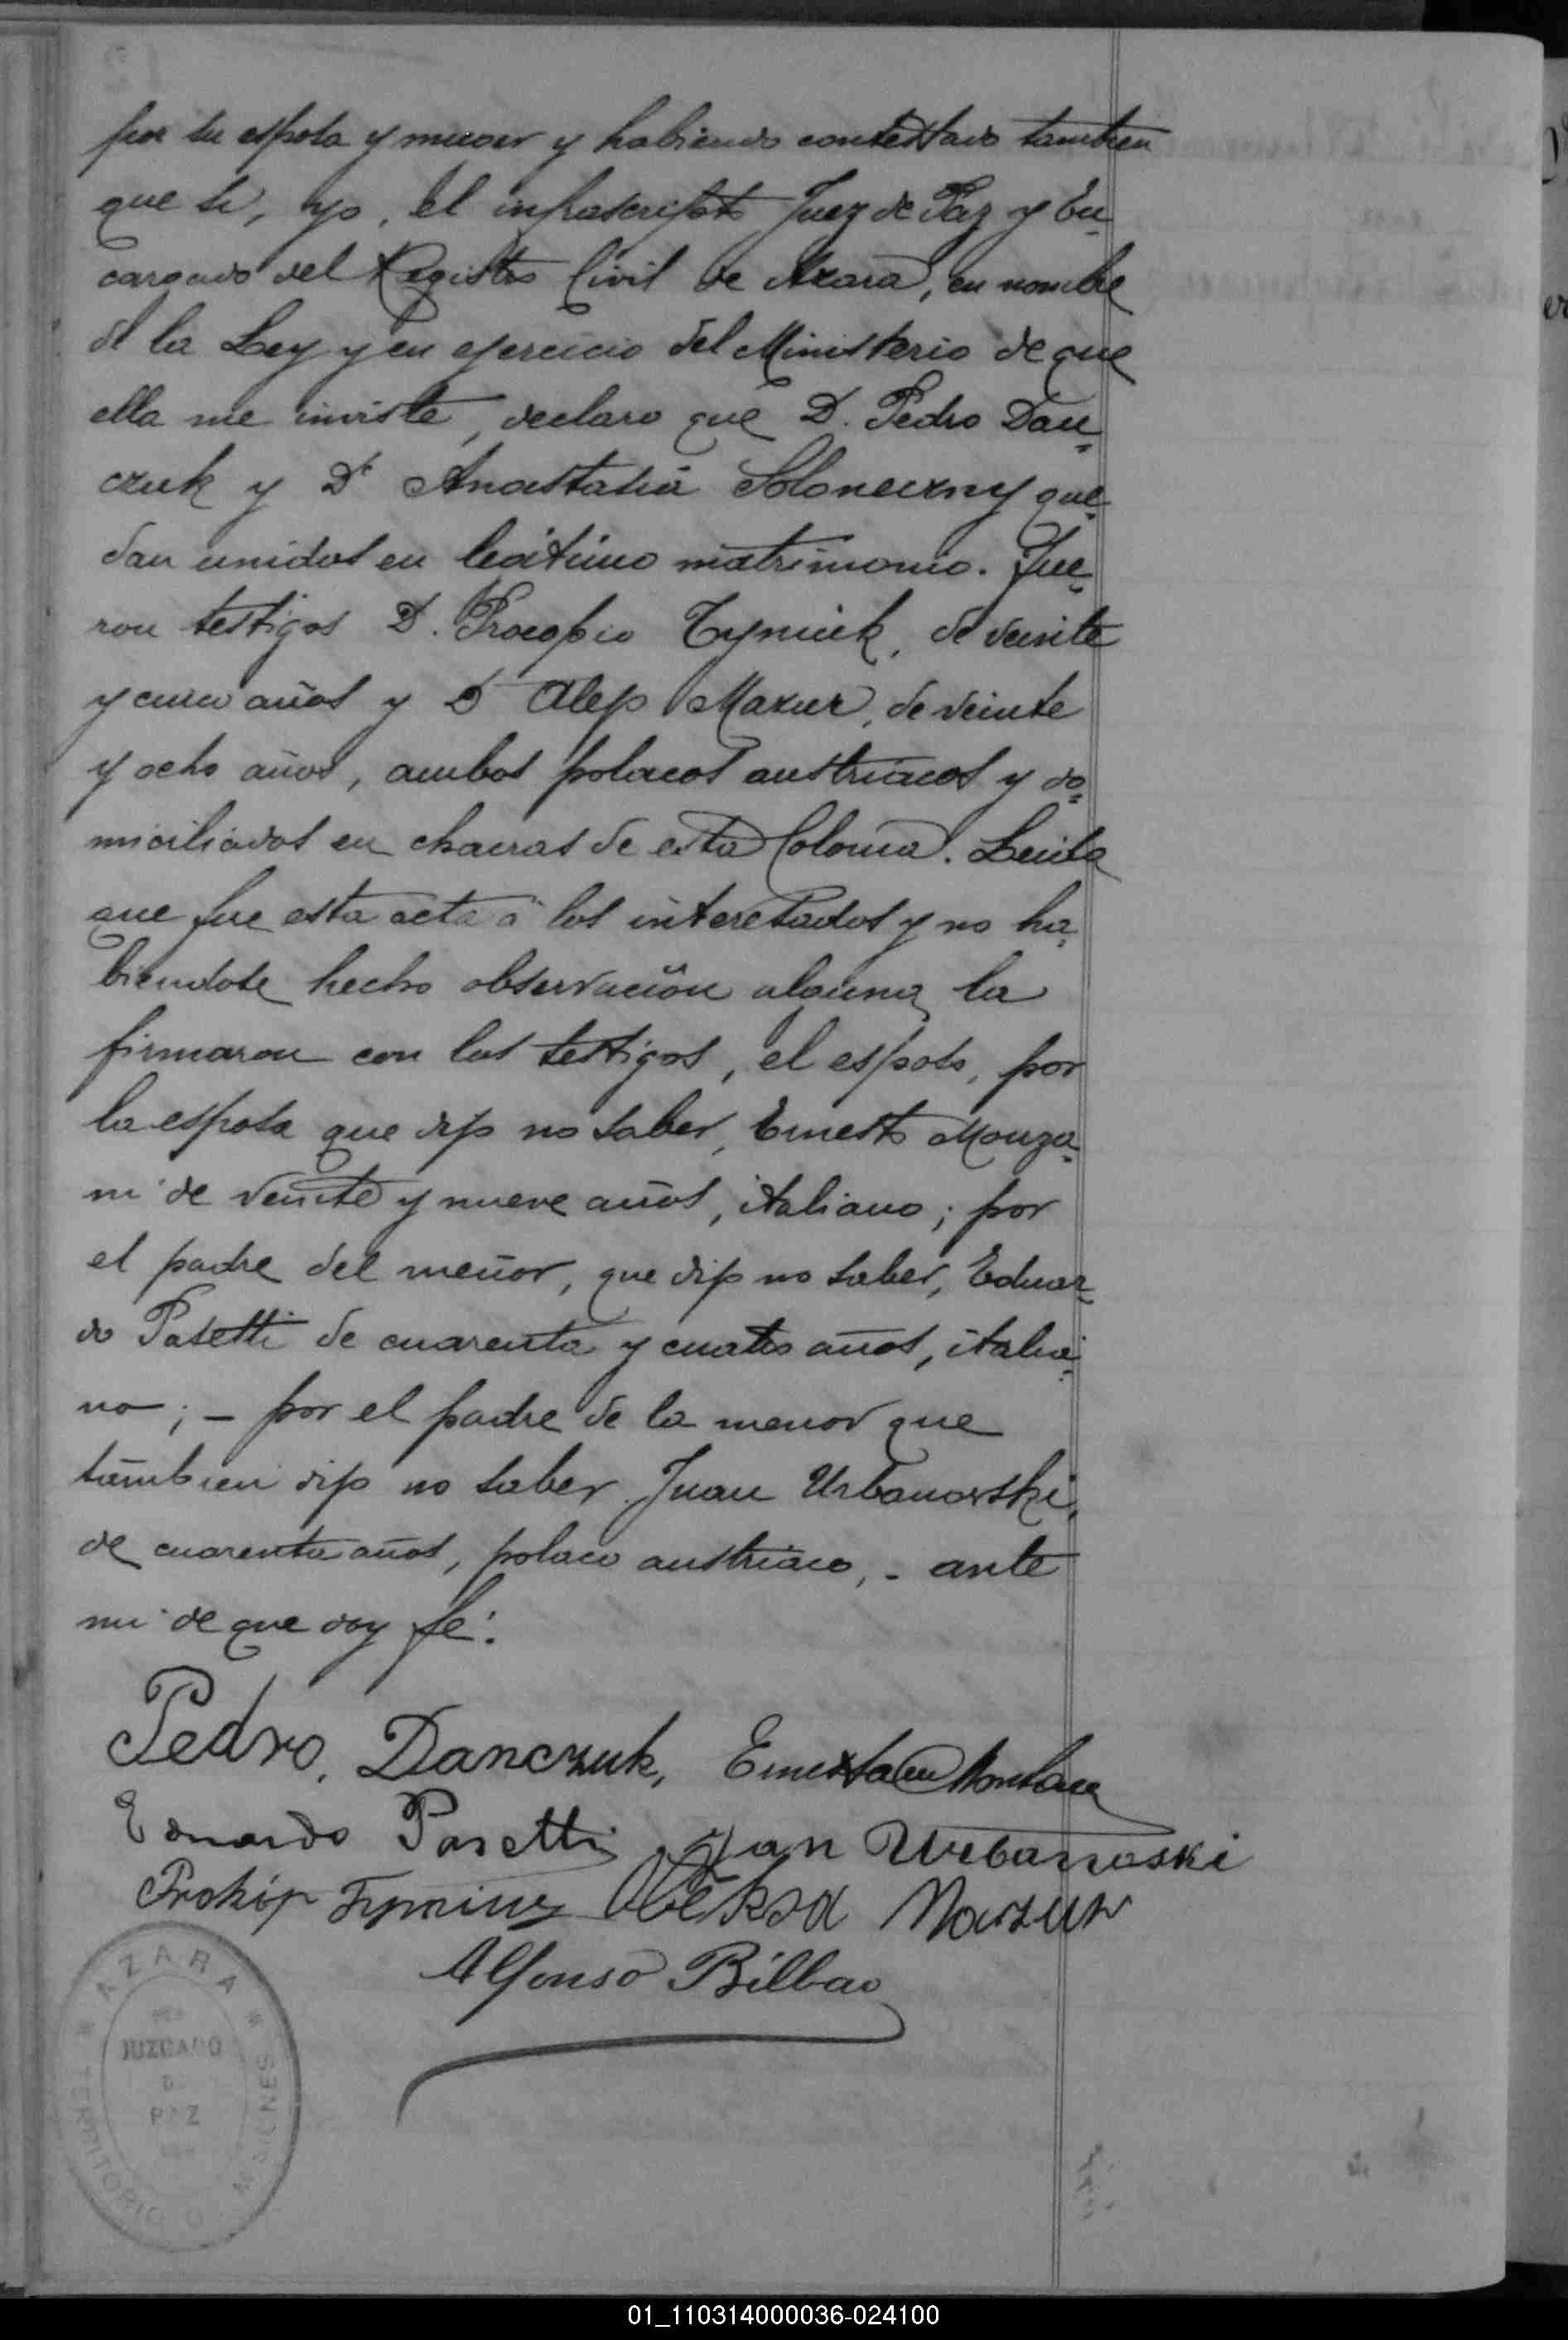 por su esposa y mujer y habiendo contestado tambien
que si, yo, el infrascripto Juez de Paz y En-
cargado del Registro Civil de Azara, en nombre
de la Ley y en ejercicio del Ministerio de que
ella me inviste, declaro que D. Pedro Dan-
czuk y Da Anastasia Soloneczny que-
dan unidos en legitimo matrimonio. Fue-
ron testigos D. Procopio Tyminik, de veinte
y cinco años y D Alejo Mazur, de veinte
y ocho años, ambos polacos austriacos y do-
miciliados en chacras de esta Colonia. Leida
que fue esta acta á los interesados y no ha-
biendose hecho observación alguna, la
firmaron con los testigos, el esposo, por
la esposa que dijo no saber, Ernesto Monza-
ni de veinte y nueve años, italiano; por
el padre del menor, que dijo no saber, Eduar-
do Pasetti de cuarenta y cuatro años, italia-
no; - por el padre de la menor que
tambien dijo no saber Juan Urbanowski,
de cuarenta años, polaco austriaco, - ante
mi de que doy fé.
Pedro, Danczuk,
Eduardo Pasetti Jan Urbanoski
Prokip Olèksa Mazur
Alfonso Bilbao
AZARA
JUZGADO
DE
PAZ
TERRITORIO D MISIONES
01_110314000036-024100